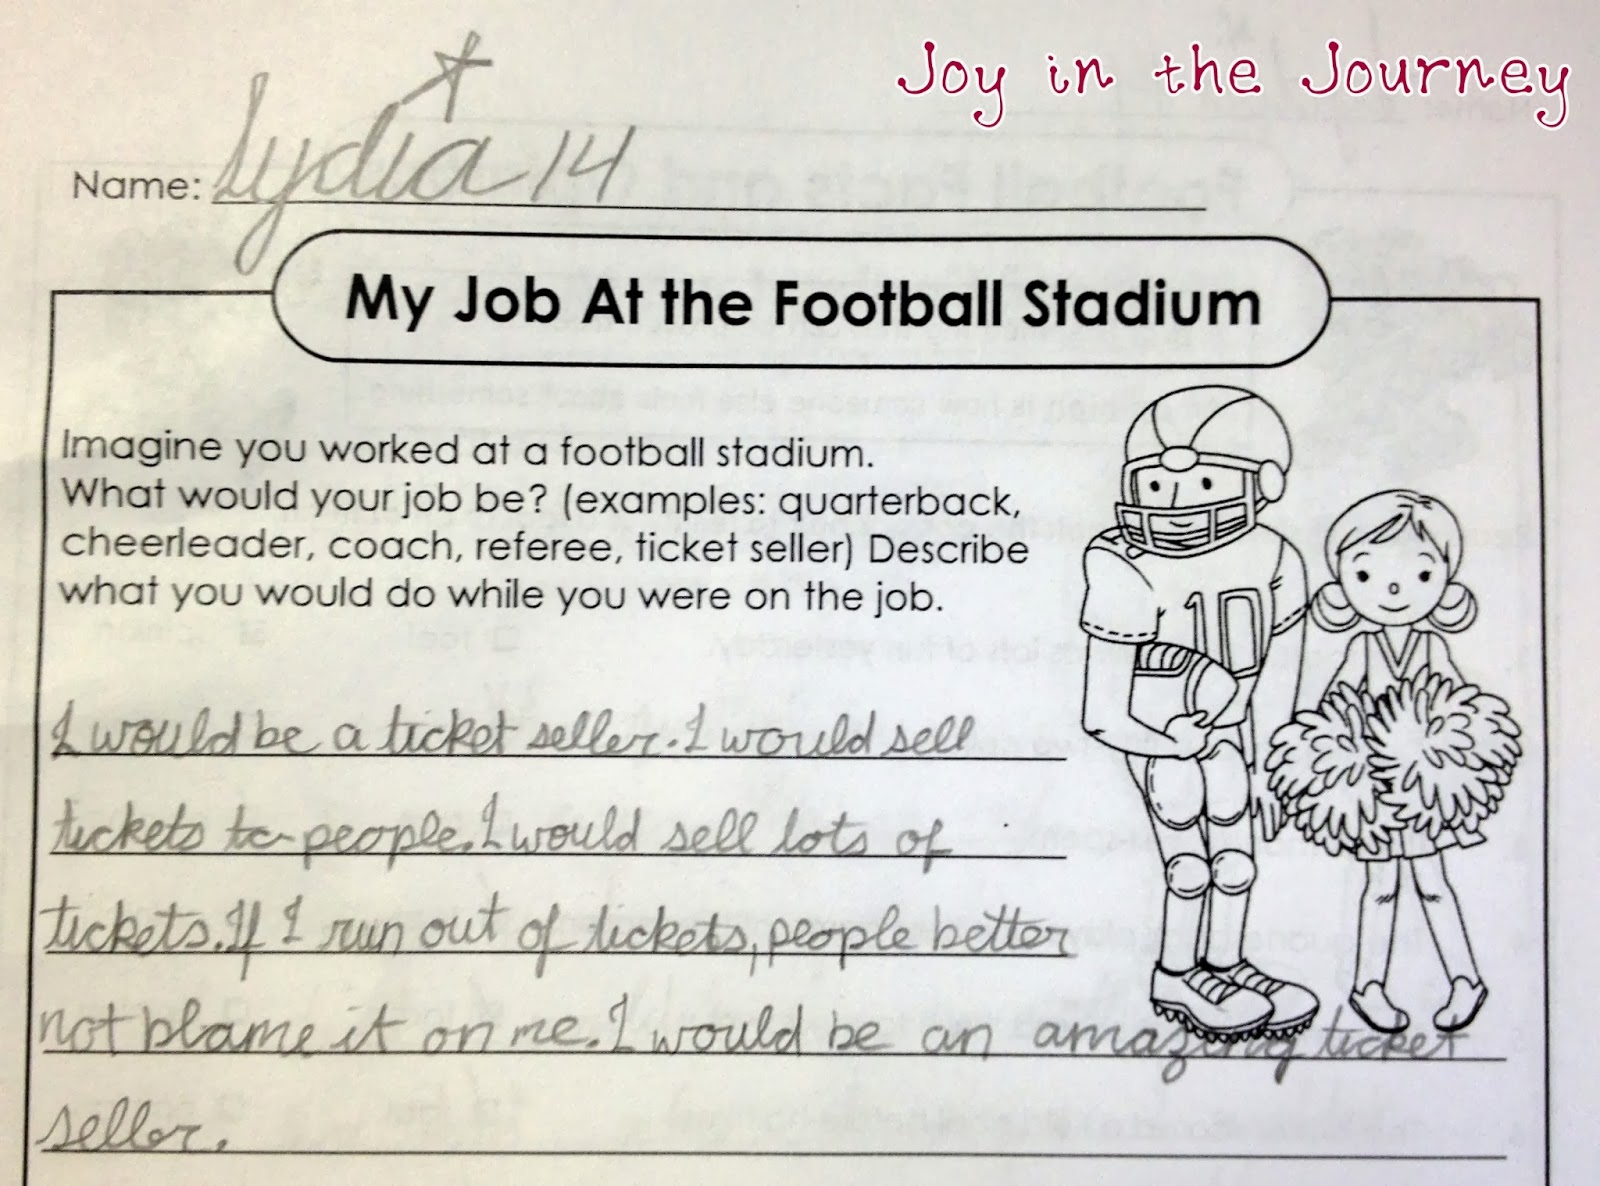 Joy in the Journey
Name: Lydia 14
My Job At the Football Stadium
Imagine you worked at a football stadium.
What would your job be? (examples: quarterback,
cheerleader, coach, referee, ticket seller) Describe
what you would do while you were on the job.
10
I would be a ticket seller. I would sell
tickets to people. I would sell lots of
tickets. If I run out of tickets, people better
not blame it on me. I would be an amazing ticket
seller.